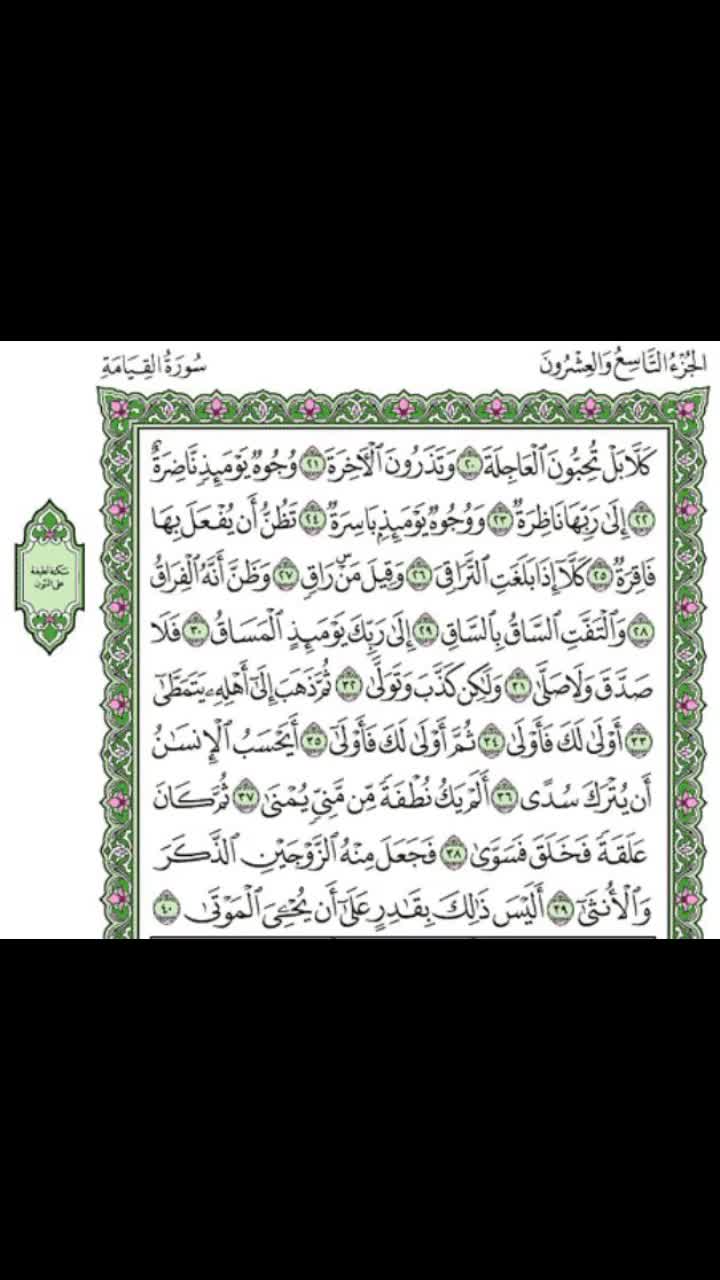 الجُزْءُ التَّاسِعُ وَالعِشْرُونَ
سُورَةُ القِيَامَةِ
كَلَّا بَلْ تُحِبُّونَ ٱلْعَاجِلَةَ ٢٠ وَتَذَرُونَ ٱلْأٓخِرَةَ ٢١ وُجُوهٌ يَوْمَئِذٍ نَّاضِرَةٌ
٢٢ إِلَىٰ رَبِّهَا نَاظِرَةٌ ٢٣ وَوُجُوهٌ يَوْمَئِذٍۭ بَاسِرَةٌ ٢٤ تَظُنُّ أَن يُفْعَلَ بِهَا
فَاقِرَةٌ ٢٥ كَلَّآ إِذَا بَلَغَتِ ٱلتَّرَاقِيَ ٢٦ وَقِيلَ مَنْۜ رَاقٍ ٢٧ وَظَنَّ أَنَّهُ ٱلْفِرَاقُ
٢٨ وَٱلْتَفَّتِ ٱلسَّاقُ بِٱلسَّاقِ ٢٩ إِلَىٰ رَبِّكَ يَوْمَئِذٍ ٱلْمَسَاقُ ٣٠ فَلَا
صَدَّقَ وَلَا صَلَّىٰ ٣١ وَلَٰكِن كَذَّبَ وَتَوَلَّىٰ ٣٢ ثُمَّ ذَهَبَ إِلَىٰٓ أَهْلِهِۦ يَتَمَطَّىٰٓ
٣٣ أَوْلَىٰ لَكَ فَأَوْلَىٰ ٣٤ ثُمَّ أَوْلَىٰ لَكَ فَأَوْلَىٰٓ ٣٥ أَيَحْسَبُ ٱلْإِنسَٰنُ
أَن يُتْرَكَ سُدًى ٣٦ أَلَمْ يَكُ نُطْفَةً مِّن مَّنِيٍّ يُمْنَىٰ ٣٧ ثُمَّ كَانَ
عَلَقَةً فَخَلَقَ فَسَوَّىٰ ٣٨ فَجَعَلَ مِنْهُ ٱلزَّوْجَيْنِ ٱلذَّكَرَ
وَٱلْأُنثَىٰٓ ٣٩ أَلَيْسَ ذَٰلِكَ بِقَٰدِرٍ عَلَىٰٓ أَن يُحْـِۧيَ ٱلْمَوْتَىٰ ٤٠
سكتة لطيفة
على النون